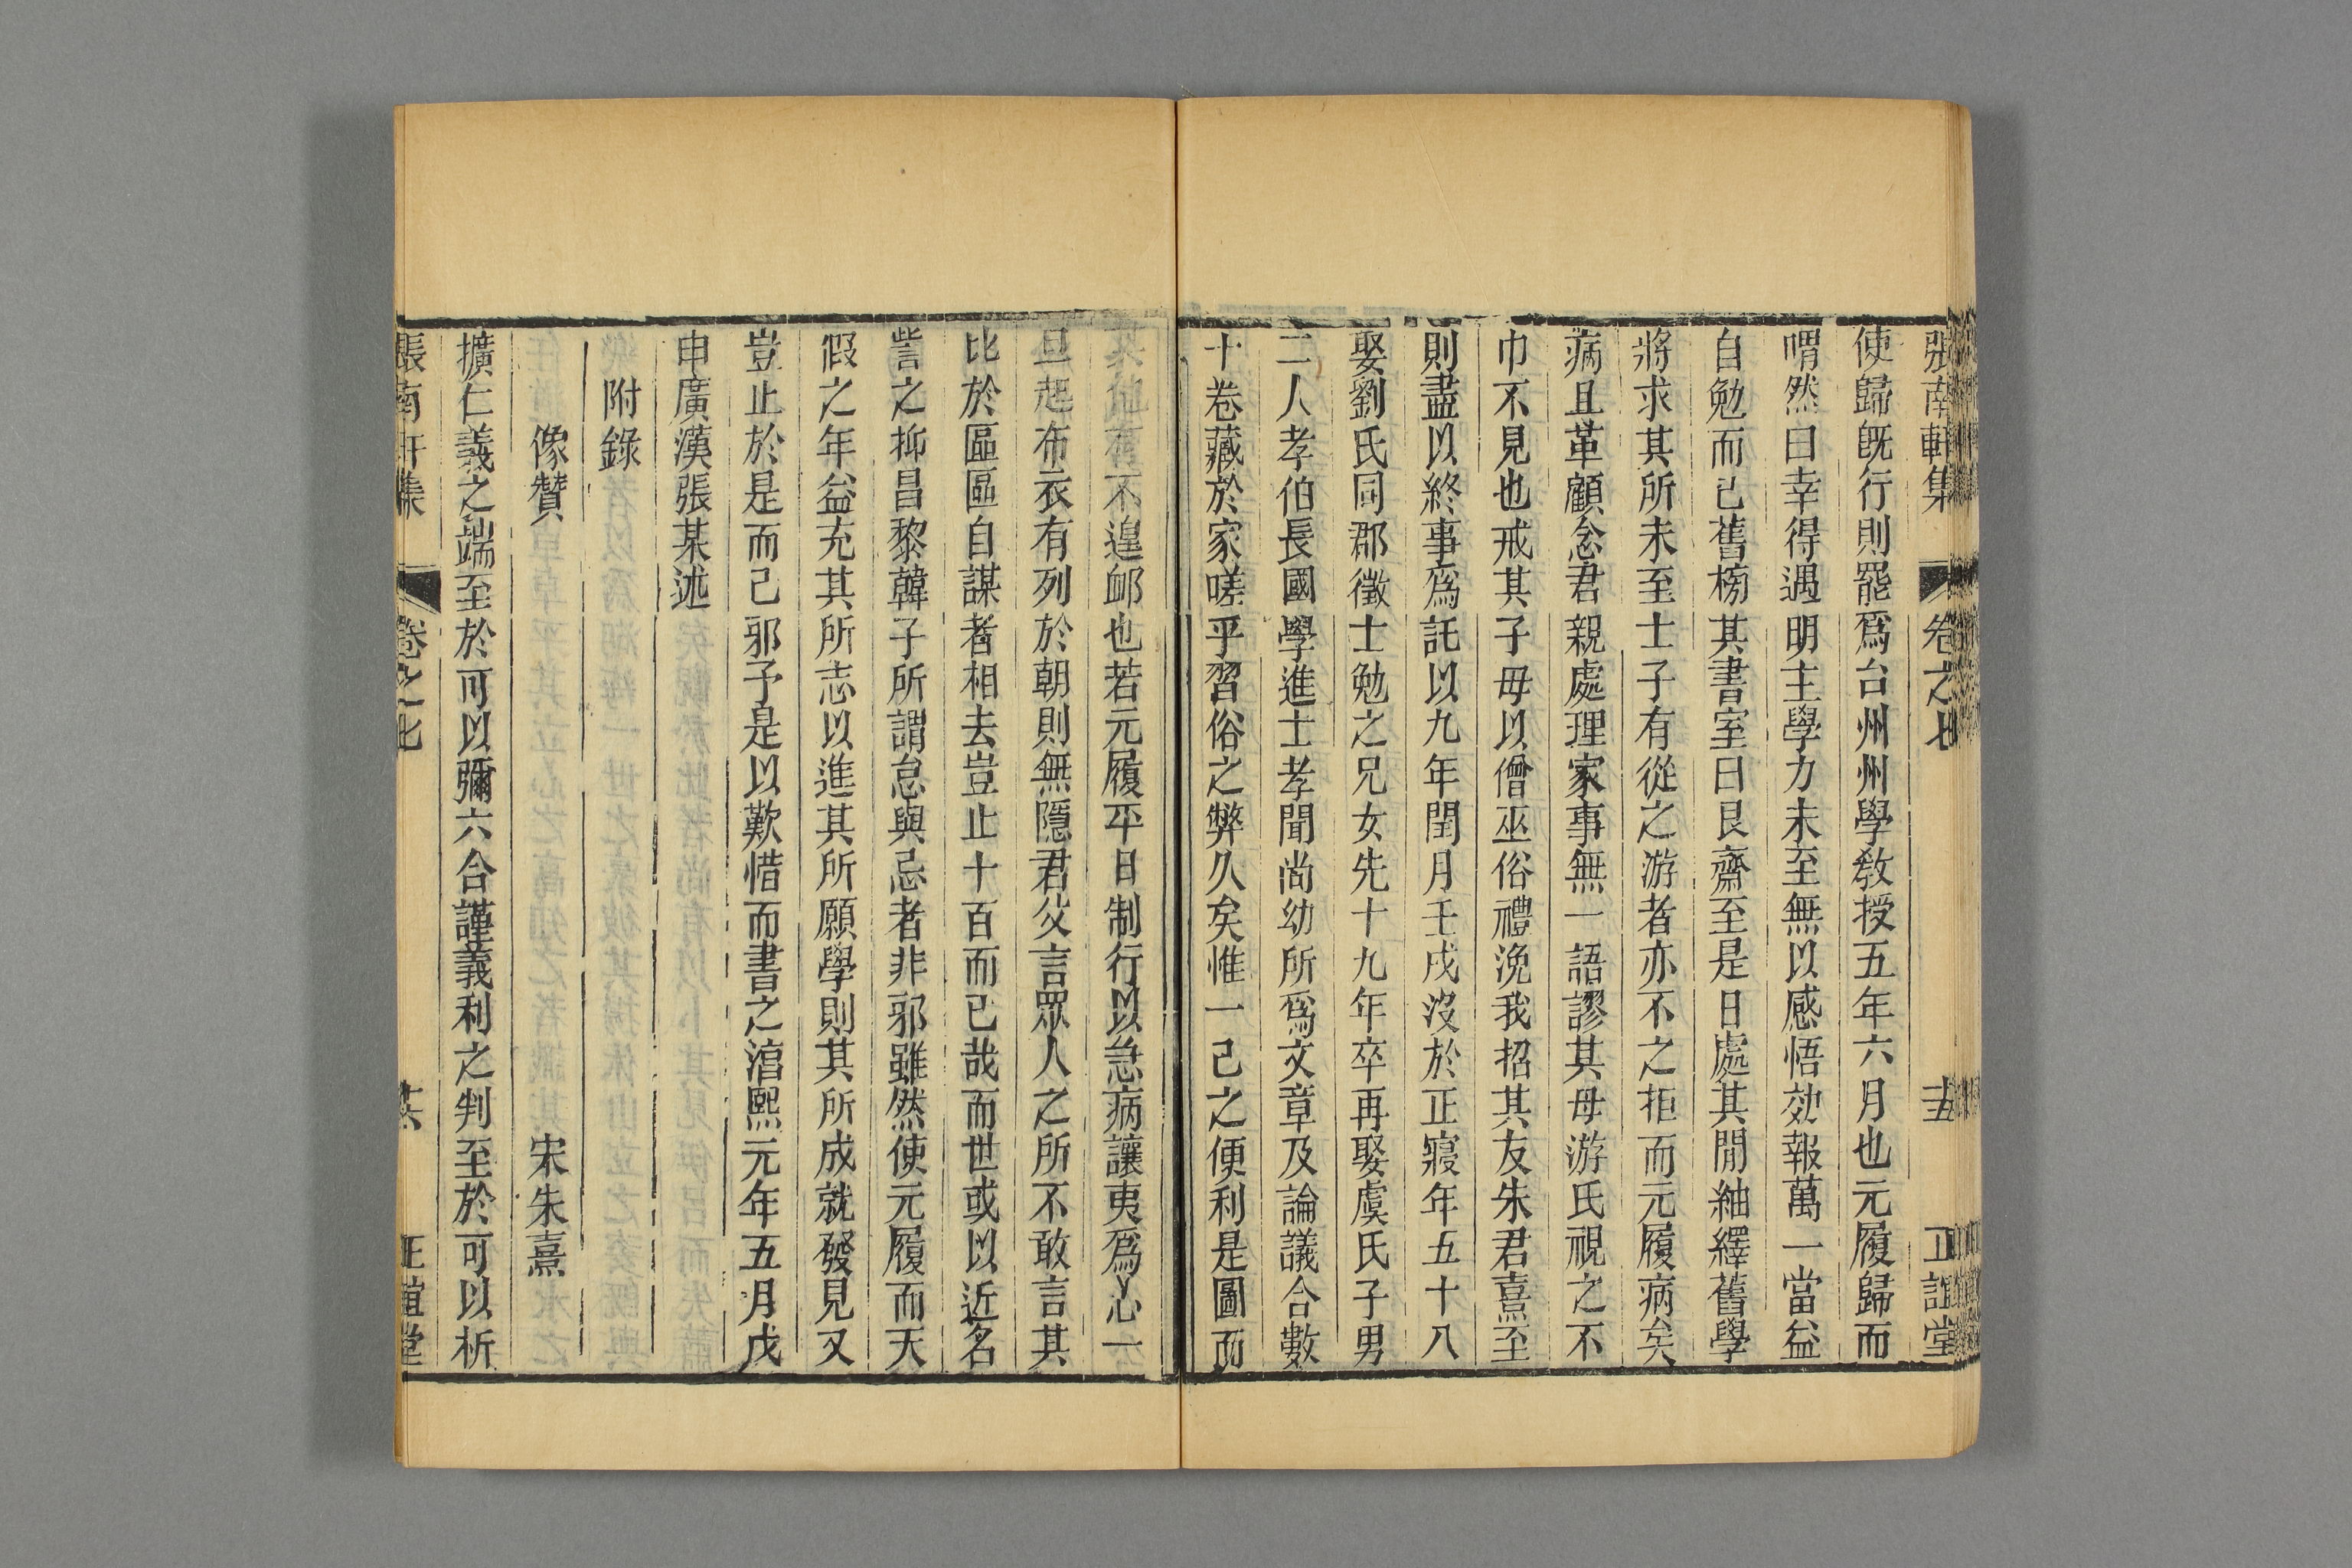 張南軒集 卷之七 十五 正誼堂
使歸旣行則罷爲台州州學敎授五年六月也元履歸而
喟然曰幸得遇明主學力未至無以感悟効報萬一當益
自勉而已舊榜其書室曰艮齋至是日處其閒紬繹舊學
將求其所未至士子有從之游者亦不之拒而元履病矣
病且革顧念君親處理家事無一語謬其母游氏視之不
巾不見也戒其子毋以僧巫俗禮浼我招其友朱君熹至
則盡以終事爲託以九年閏月壬戌沒於正寢年五十八
娶劉氏同郡徵士勉之兄女先十九年卒再娶虞氏子男
二人孝伯長國學進士孝聞尚幼所爲文章及論議合數
十卷藏於家嗟乎習俗之弊久矣惟一己之便利是圖而
其他有不遑卹也若元履平日制行以急病讓夷爲心一
旦起布衣有列於朝則無隱君父言眾人之所不敢言其
比於區區自謀者相去豈止十百而已哉而世或以近名
訾之抑昌黎韓子所謂怠與忌者非邪雖然使元履而天
假之年益充其所志以進其所願學則其所成就發見又
豈止於是而已邪予是以歎惜而書之湻熙元年五月戊
申廣漢張某述
附錄
像贊 宋朱熹
擴仁義之端至於可以彌六合謹義利之判至於可以析
張南軒集 卷之七 十六 正誼堂